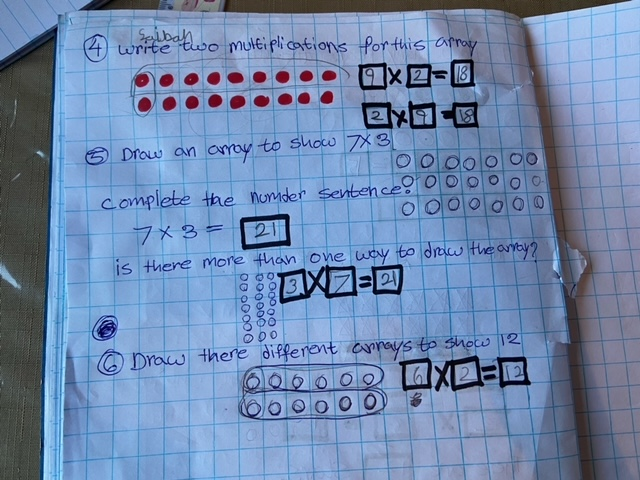 Saibah
④ Write two multiplications for this array
9 × 2 = 18
2 × 9 = 18
⑤ Draw an array to show 7×3
Complete the number sentence?
7 × 3 = 21
is there more than one way to draw the array?
3 × 7 = 21
⑥ Draw there different arrays to show 12
6 × 2 = 12